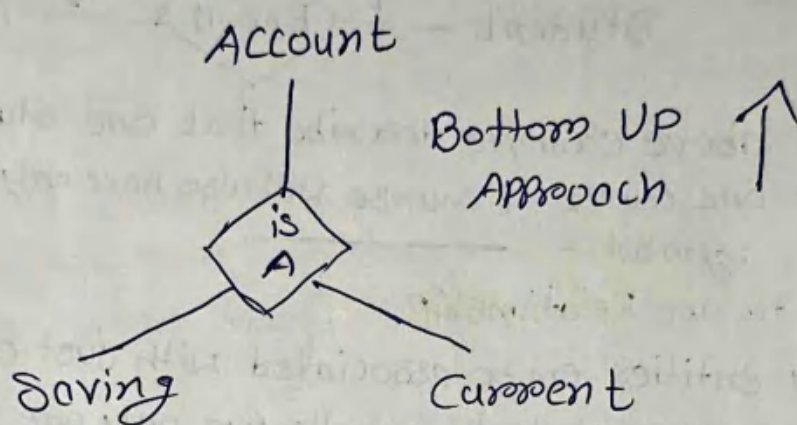 Account
Bottom UP
Approach
is
A
Saving
Current